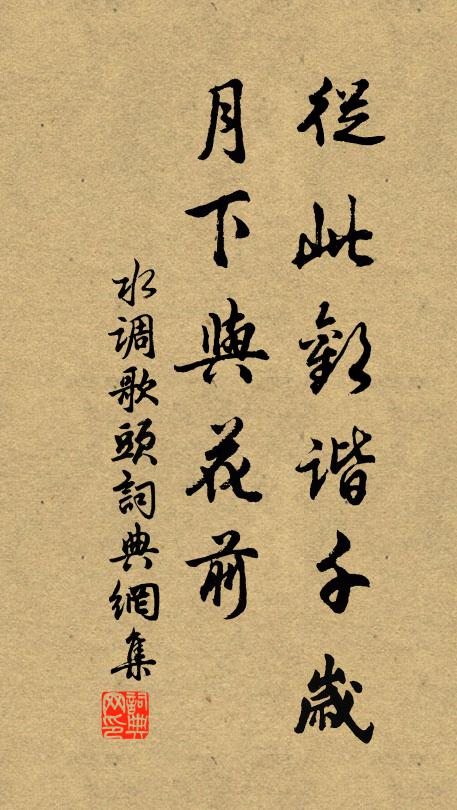 從此歡谐千歲
月下與花前
水调歌頭詞典網集
詞典网印